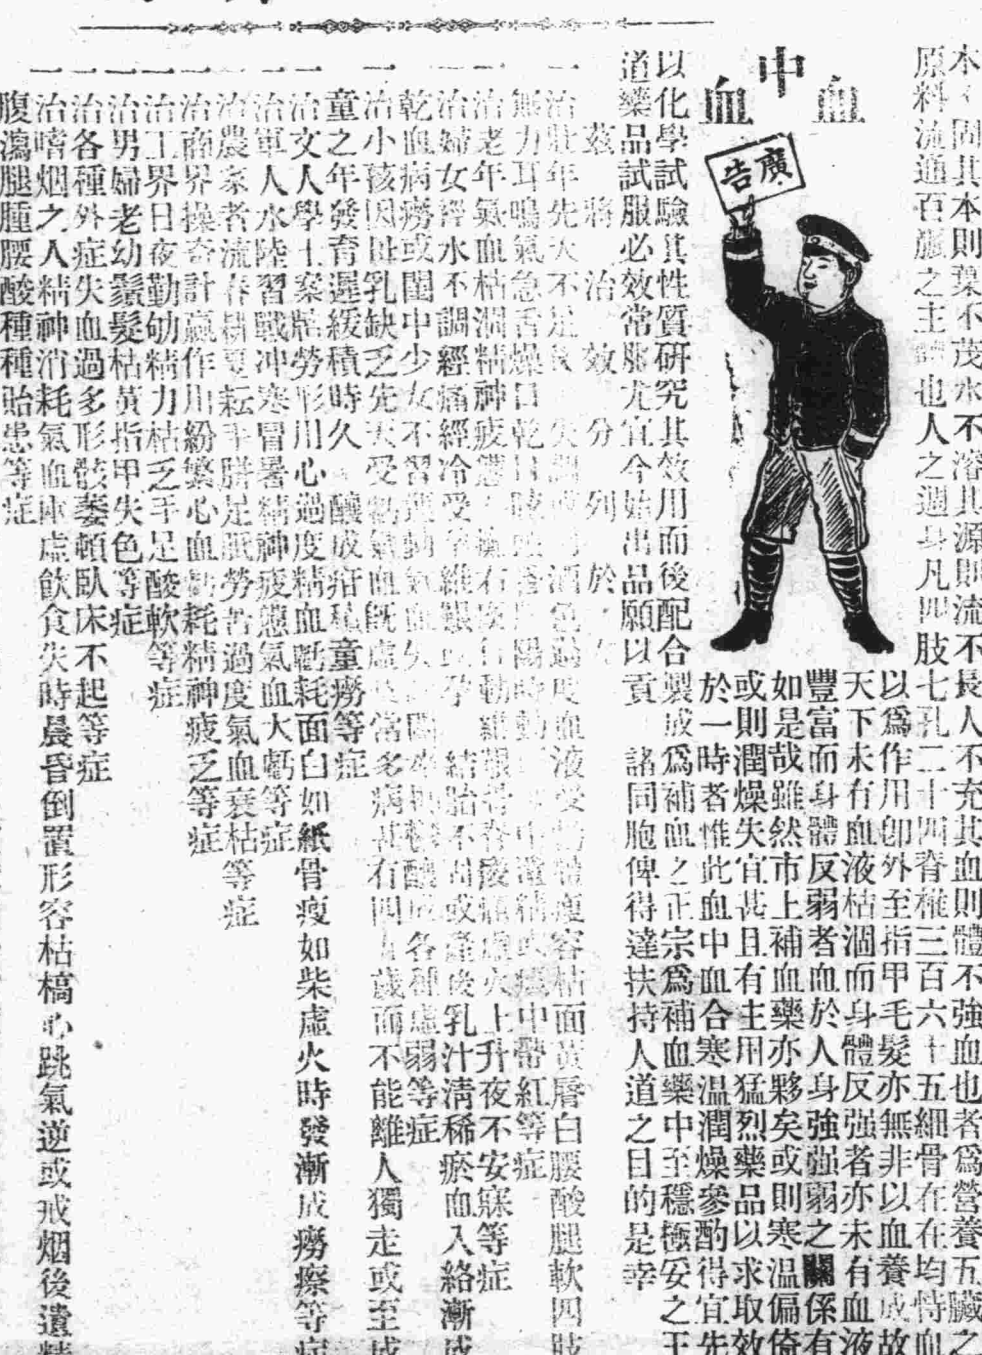 血中血
廣告
木不固其本則葉不茂水不溶其源則流不長人不充其血則體不強血也者爲營養五臟之
原料流通百骸之主也人之週身凡四肢七孔二十四脊椎三百六十五細骨在在均恃血
以爲作用卽外至指甲毛髮亦無非以血養成故
天下未有血液枯涸而身體反强者亦未有血液
豐富而身體反弱者血於人身強强弱之關係有
如是哉雖然市上補血藥亦夥矣或則寒溫偏倚
或則潤燥失宜甚且有主用猛烈藥品以求取效
於一時者惟此血中血合寒溫潤燥參酌得宜先
以化學試驗其性質研究其效用而後配合製成爲補血之正宗爲補血藥中至穩極妥之王
道藥品試服必效常服尤宜今始出品願以貢諸同胞俾得達扶持人道之目的是幸
茲將治效分列於
一治壯年先天不足失調酒色過度血液受體瘦容枯面黃唇白腰酸腿軟四肢
無力耳鳴氣急舌燥口乾中帶紅等症
一治老年氣血枯涸精神疲憊行動維艱骨脊酸痛虛火上升夜不安寐等症
一治婦女經水不調經痛經冷受孕維艱結胎不固或產後乳汁淸稀瘀血入絡漸成
乾血病癆或閨中少女不習運動氣血各種虛弱等症
一治小孩因母乳缺乏先天受氣血旣虛常多病甚有四歲而不能離人獨走或至成
童之年發育遲緩積時久釀成疳童癆等症
一治文人學士案牘勞形用心過度精血虧耗面白如紙骨瘦如柴虛火時發漸成癆瘵等症
一治軍人水陸習戰冲寒冒暑精神疲憊氣血大虧等症
一治農家者流春耕夏耘手胼足胝勞苦過度氣血衰枯等症
一治商界操奇計贏作用紛繁心血虧耗精神疲乏等症
一治工界日夜勤劬精力枯乏手足酸軟等症
一治男婦老幼鬚髮枯黃指甲失色等症
一治各種外症失血過多形骸萎頓臥床不起等症
一治嗜烟之人精神消耗氣血庫虛飮食失時晨昏倒置形容枯槁心跳氣逆或戒烟後遺精
腹瀉腿腫腰酸種種貽患等症